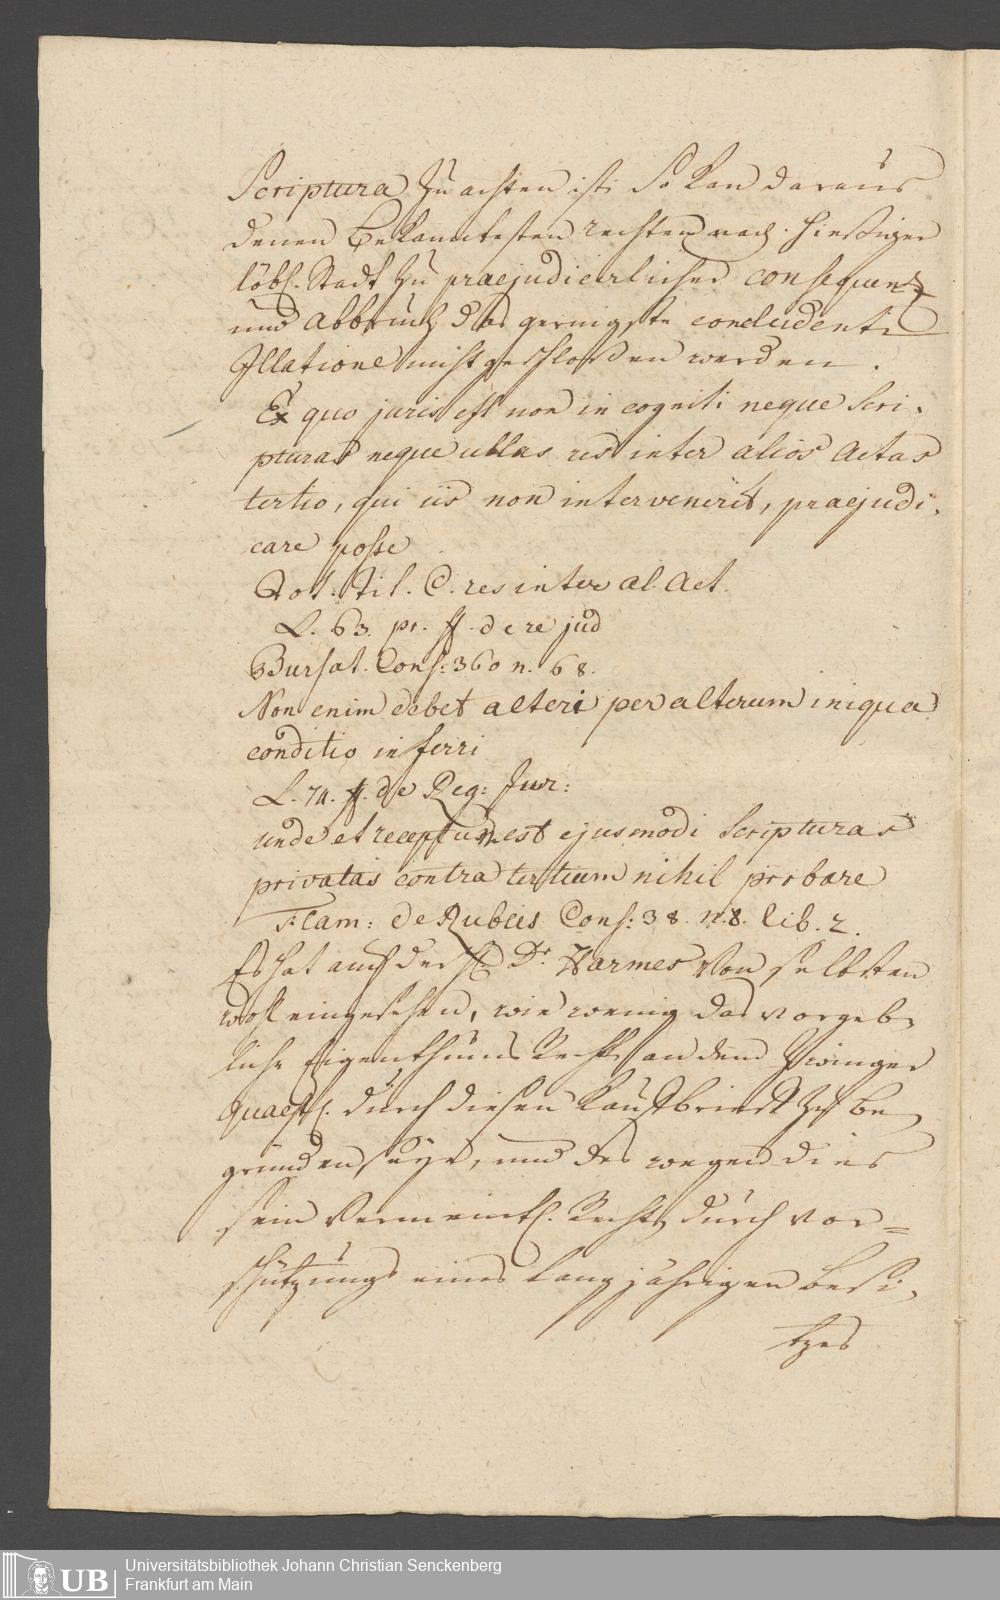 Scriptura zu achten ist; So kan daraus
denen bekanntesten rechten nach hießiger
löbl. Stadt zu praejudicirlicher consequenz
und Abbruch das geringste concludente
Illatione nicht geschloßen werden.
Ex quo juris est non in cogniti neque Scri-
pturas neque ullas res inter alios Actas
tertio, qui iis non intervenerit, praejudi-
care posse
Tot. Tit. C. res inter al. Act.
L. 63. pr. ff. de re jud
Bursat. Cons: 360 n. 68.
Non enim debet alteri per alterum iniqua
conditio inferri
L. 74. ff. de Reg: Jur:
unde et receptum est ejusmodi Scripturas
privatas contra tertium nihil probare
Flam: de Rubeis Cons: 38. n. 8. lib. 2.
Es hat auch der H. Dr. Harmes von selbsten
wohl eingesehen, wie wenig das vorgeb-
liche Eigenthums Recht an dem Zwinger
quaest. durch diesen Kauffbrieff zu be-
gründen seye, und des wegen dies
sein Vermeintl. Recht durch vor=
schützung eines lang jährigen Besi-
tzes
UB
Universitätsbibliothek Johann Christian Senckenberg
Frankfurt am Main